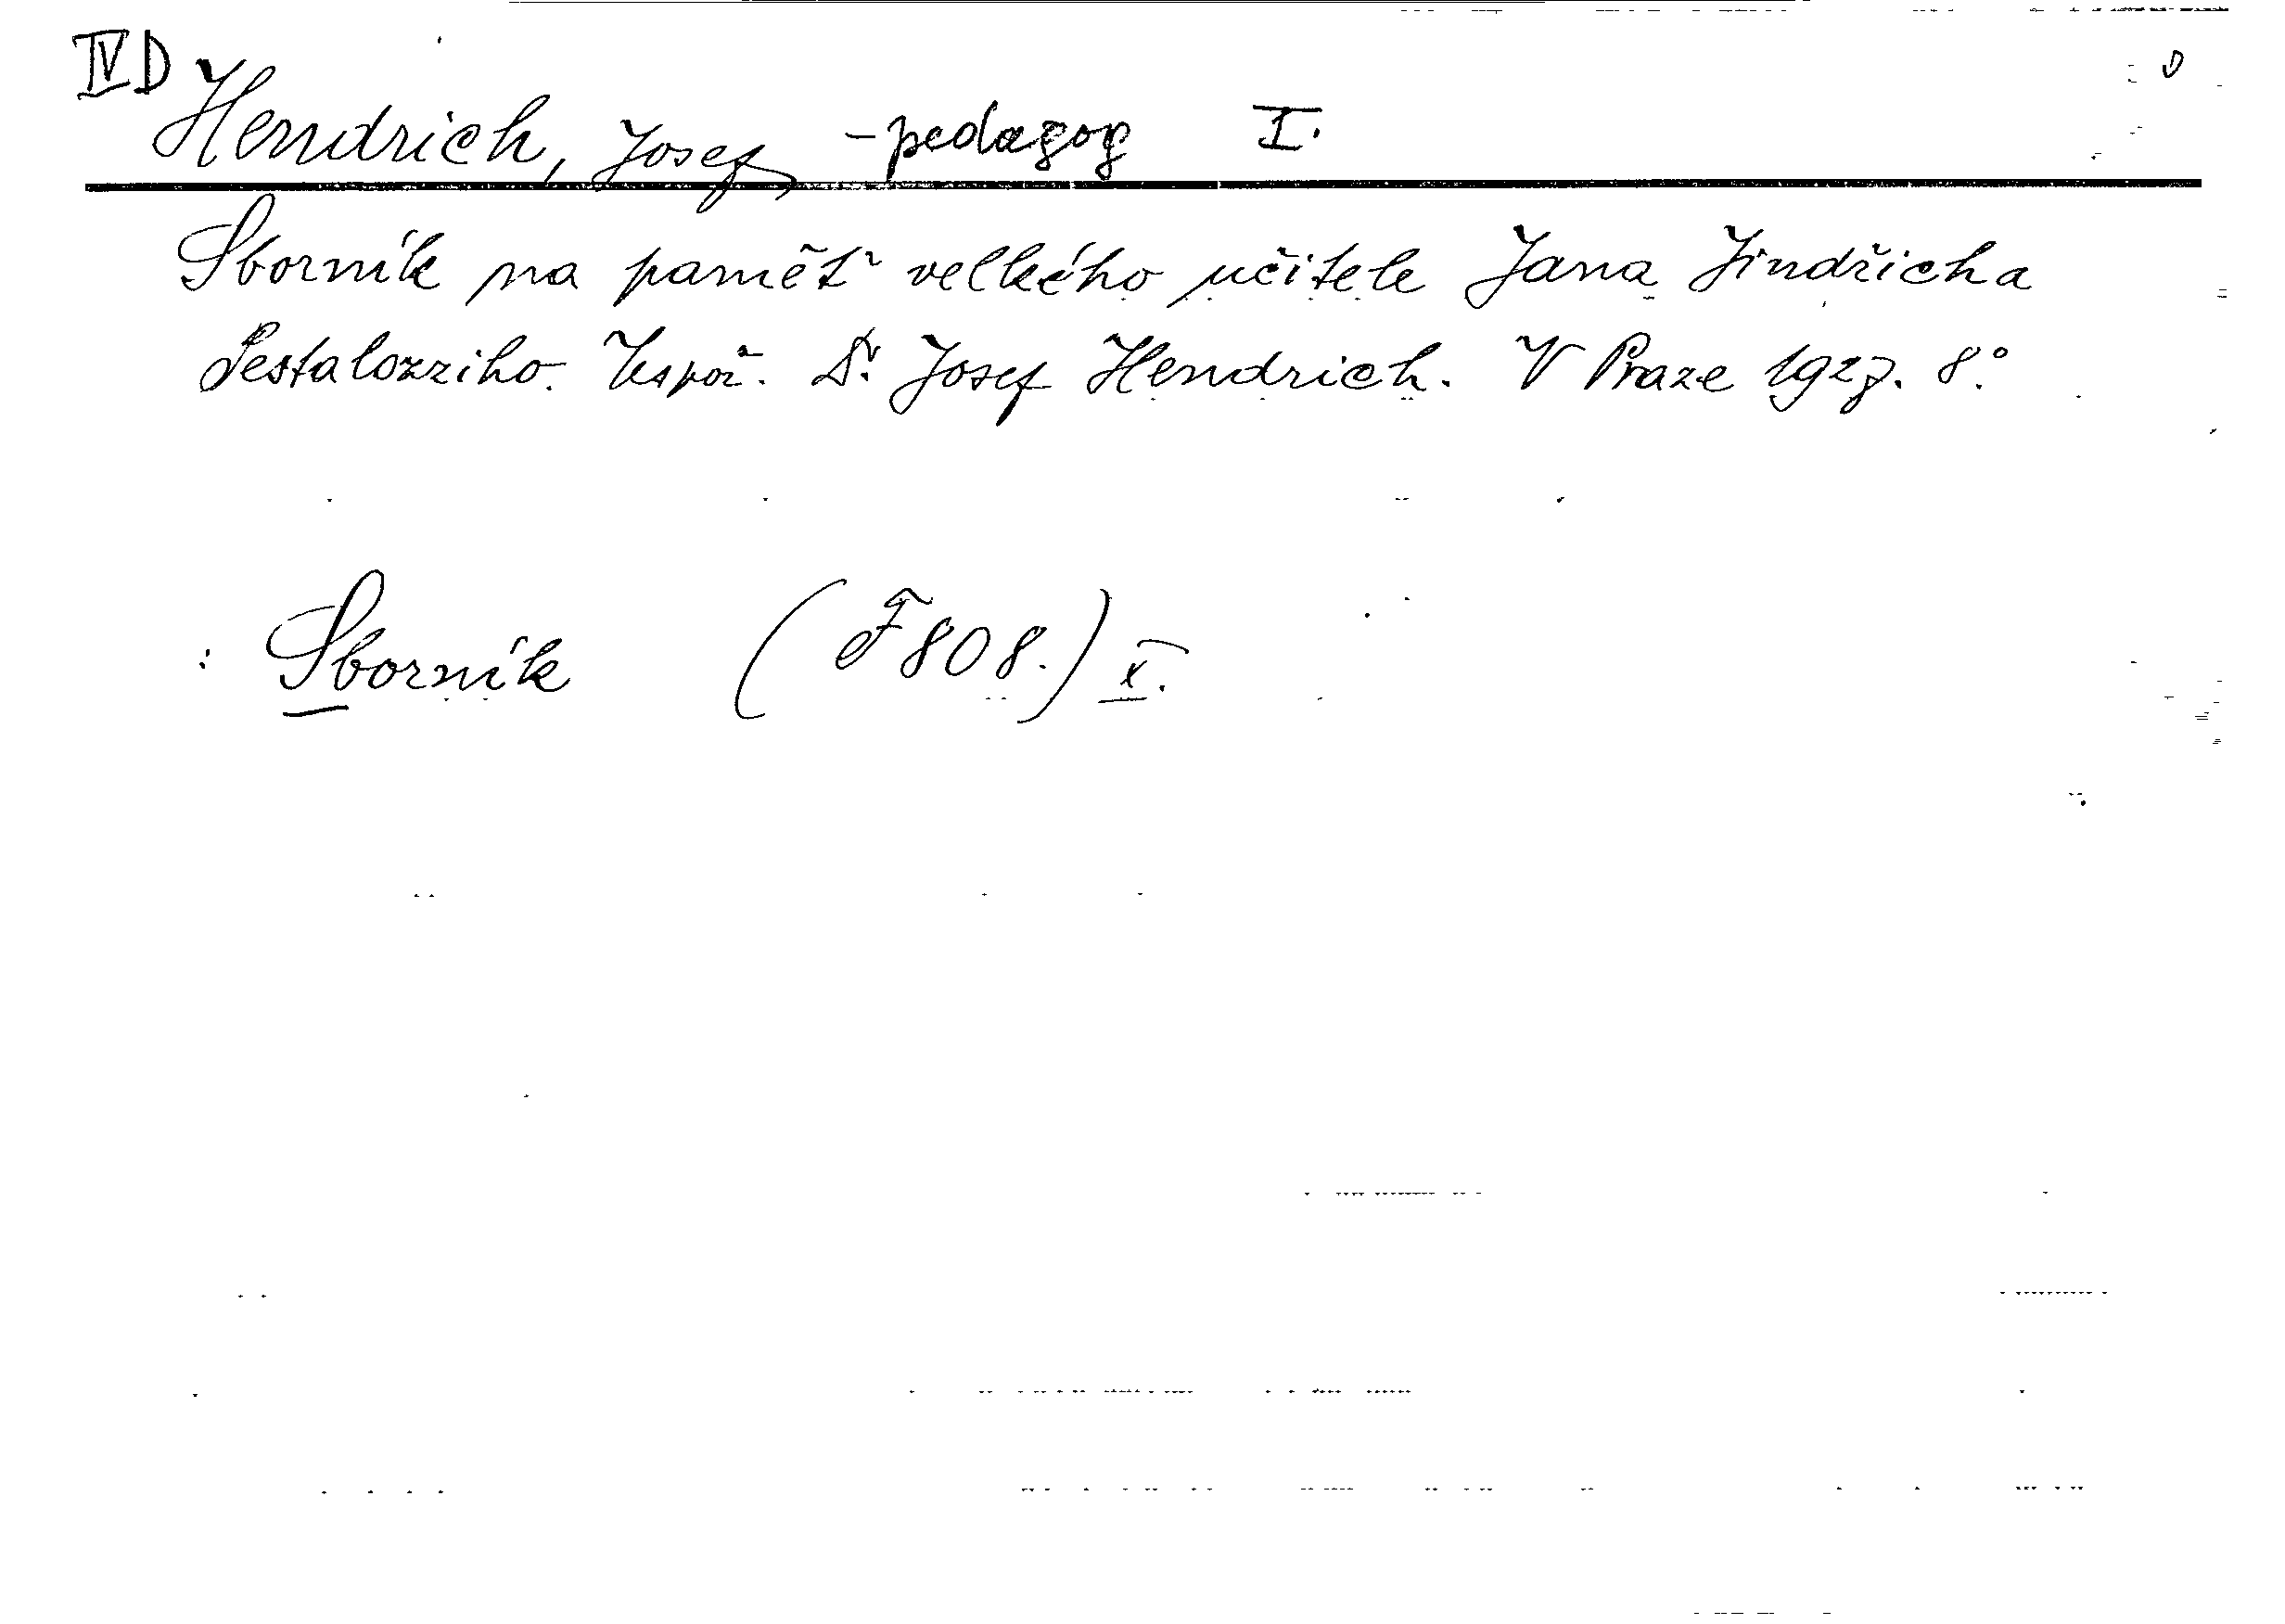 IV D
Hendrich, Josef, - pedagog I.
Sborník na paměť velkého učitele Jana Jindřicha
Pestalozziho. Uspoř. Dr. Josef Hendrich. V Praze 1927. 8°.
: Sborník (F808.) X.